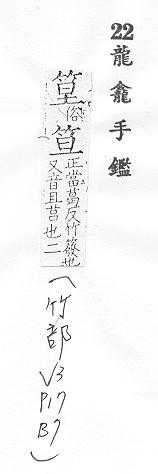 22 龍龕手鑑
𥮅俗笪正當葛反竹籧也
又音且莒也二
(竹部 V3
P17
B7)